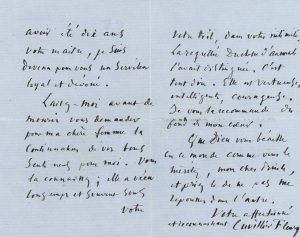 avoir été dix ans
votre maître, je suis
devenu pour vous un serviteur
loyal et dévoué.
Laissez-moi avant de
mourir vous demander
pour ma chère femme la
continuation de vos bons
pour moi. Vous
la connaissez; elle a vécu
longtemps et souvent
votre
votre toit, dans votre intimité,
La regrettée Duchesse d'Aumale
l'avait distinguée. C'est
tout dire. Elle est vertueuse,
intelligente, courageuse.
Je vous la recommande du
fond de mon cœur.
Que Dieu vous bénisse
en ce monde comme vous le
méritez, mon cher Prince,
et priez le de ne pas me
repousser dans l'autre.
Votre affectionné
et reconnaissant Cuvillier Fleury